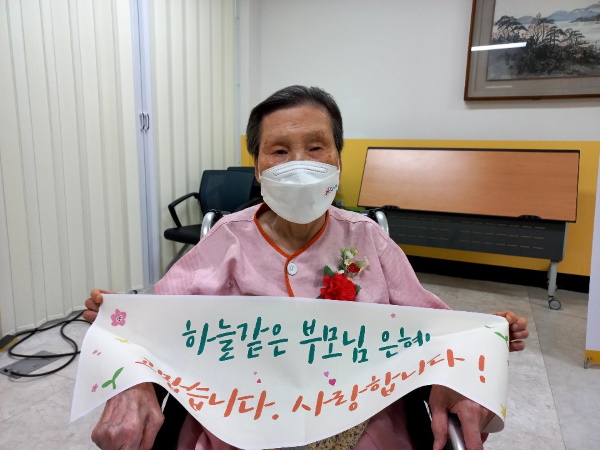 하늘같은 부모님 은혜
고맙습니다. 사랑합니다!